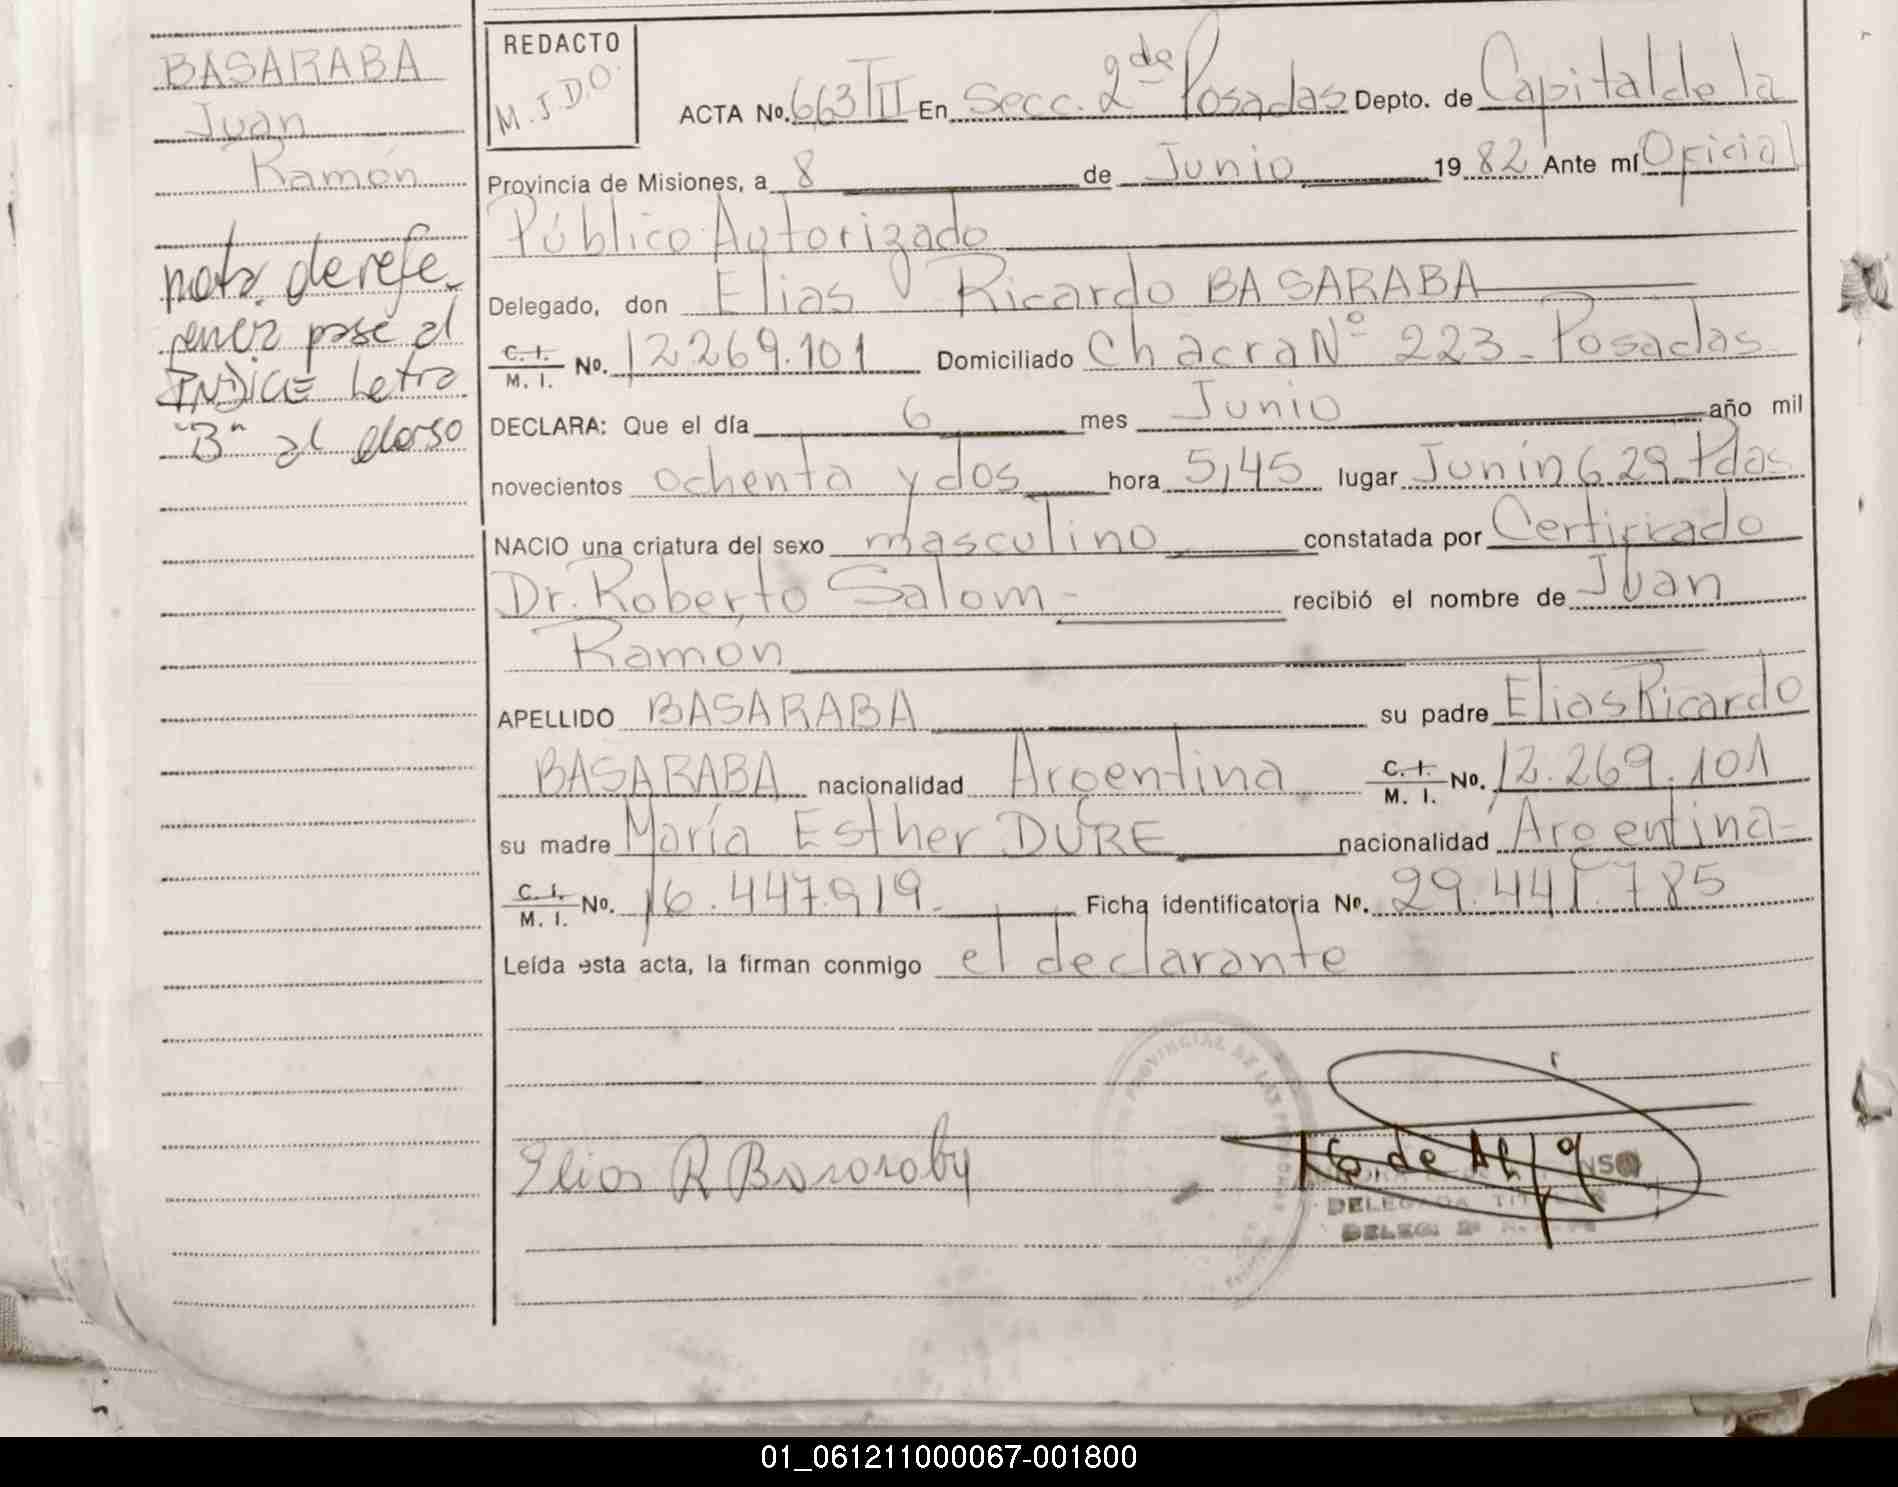 BASARABA
Juan
Ramón
nota de refe
rencia pase al
INDICE Letra
"B" al dorso
REDACTO
M.J.D.O.
ACTA No. 663 TII En Secc. 2da Posadas Depto. de Capital de la
Provincia de Misiones, a 8 de Junio 1982 Ante mí Oficial
Público Autorizado
Delegado, don Elias Ricardo BASARABA
C. I. / M. I. No. 12.269.101 Domiciliado Chacra Nº 223 - Posadas
DECLARA: Que el día 6 mes Junio año mil
novecientos ochenta y dos hora 5,45 lugar Junín 629 Pdas
NACIO una criatura del sexo masculino constatada por Certificado
Dr. Roberto Salom - recibió el nombre de Juan
Ramón
APELLIDO BASARABA su padre Elias Ricardo
BASARABA nacionalidad Argentina C. I. / M. I. No. 12.269.101
su madre María Esther DURE nacionalidad Argentina -
C. I. / M. I. No. 16.447.919 - Ficha identificatoria No. 29.441.785
Leída esta acta, la firman conmigo el declarante
PROVINCIAL DE LAS
Elias R Basaraby
DELEGADA
DELEG. 2ª
01_061211000067-001800